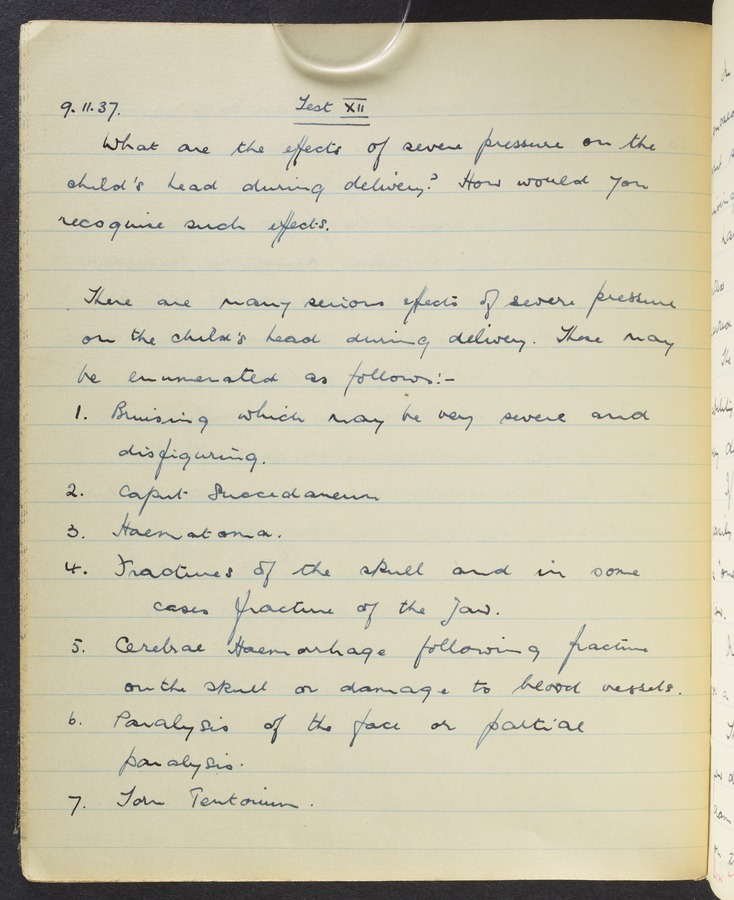 9.11.37. Test XII
What are the effects of severe pressure on the
child's head during delivery? How would you
recognise such effects.
There are many serious effects of severe pressure
on the child's head during delivery. These may
be enumerated as follows:-
1. Bruising which may be very severe and
disfiguring.
2. Caput Succedaneum
3. Haematoma.
4. Fractures of the skull and in some
cases fracture of the Jaw.
5. Cerebral Haemorrhage following fracture
on the skull or damage to blood vessels.
6. Paralysis of the face or partial
paralysis.
7. Torn Tentorium.